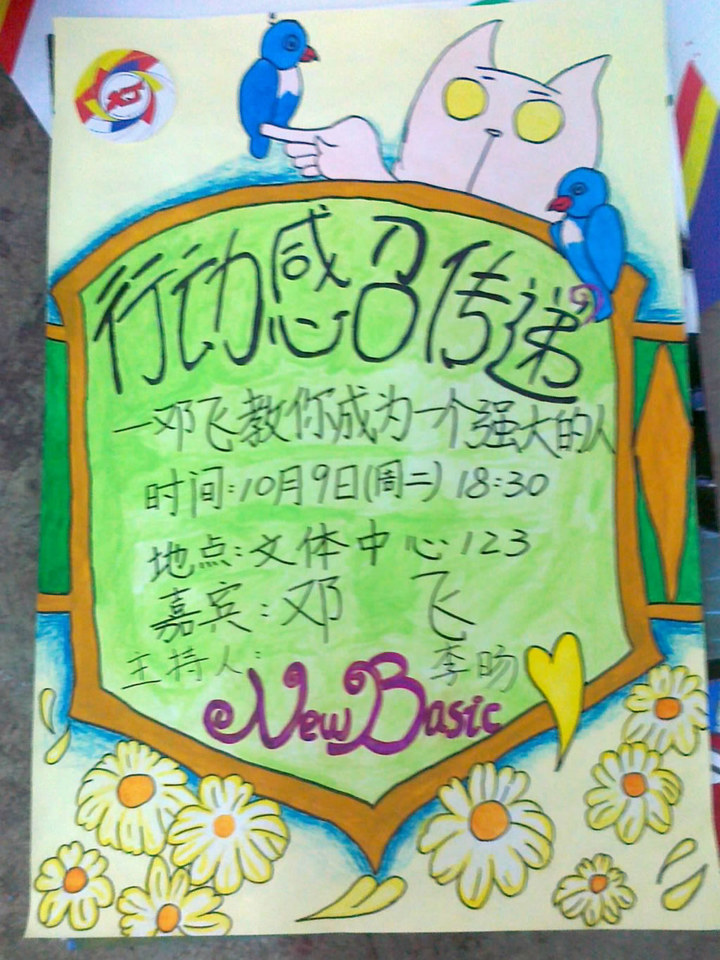 行动感召传递
一邓飞教你成为一个强大的人
时间:10月9日(周二) 18:30
地点:文体中心123
嘉宾:邓 飞
主持人: 李旸
New Basic